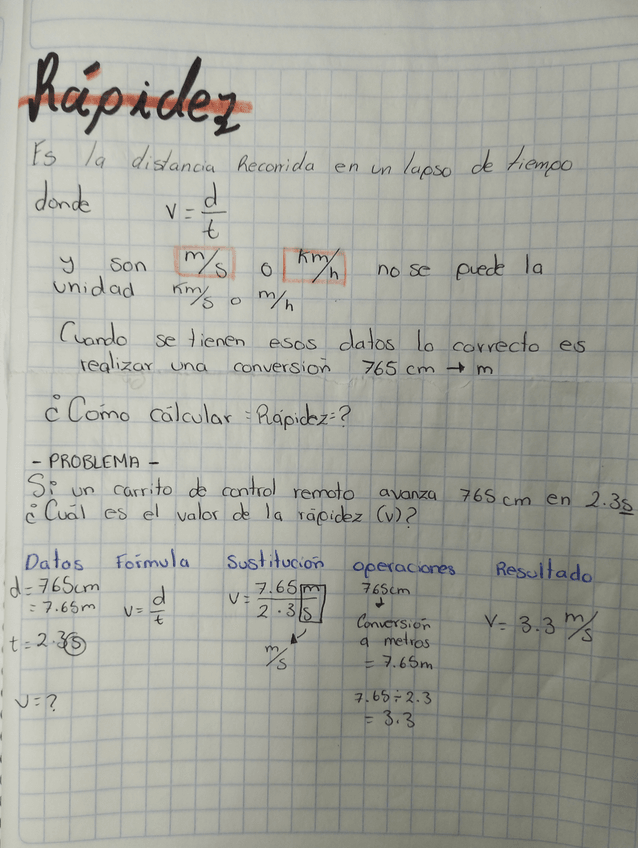 Rápidez
Es la distancia Recorrida en un lapso de tiempo
donde v = d/t
y son m/s o km/h no se puede la
unidad km/s o m/h
Cuando se tienen esos datos lo correcto es
realizar una conversión 765 cm → m
¿Cómo cálcular = Rápidez = ?
- PROBLEMA -
Si un carrito de control remoto avanza 765 cm en 2.3s
¿Cuál es el valor de la rápidez (v)?
Datos Fórmula Sustitución operaciones Resultado
d = 765cm
= 7.65m
t = 2.3 s
v = ?
v = d/t
v = 7.65 m / 2.3 s
m/s
765cm
↓
Conversión
a metros
= 7.65m
7.65 ÷ 2.3
= 3.3
V = 3.3 m/s